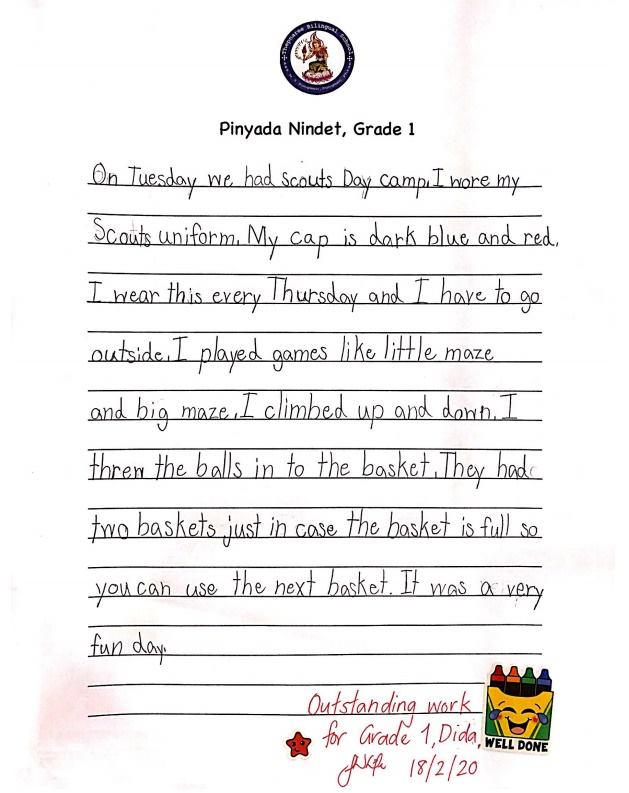 Thepnaree Bilingual School
Pinyada Nindet, Grade 1
On Tuesday we had scouts Day camp. I wore my
Scouts uniform. My cap is dark blue and red.
I wear this every Thursday and I have to go
outside. I played games like little maze
and big maze. I climbed up and down. I
threw the balls in to the basket. They had
two baskets just in case the basket is full so
you can use the next basket. It was a very
fun day.
Outstanding work
for Grade 1, Dida,
18/2/20
WELL DONE